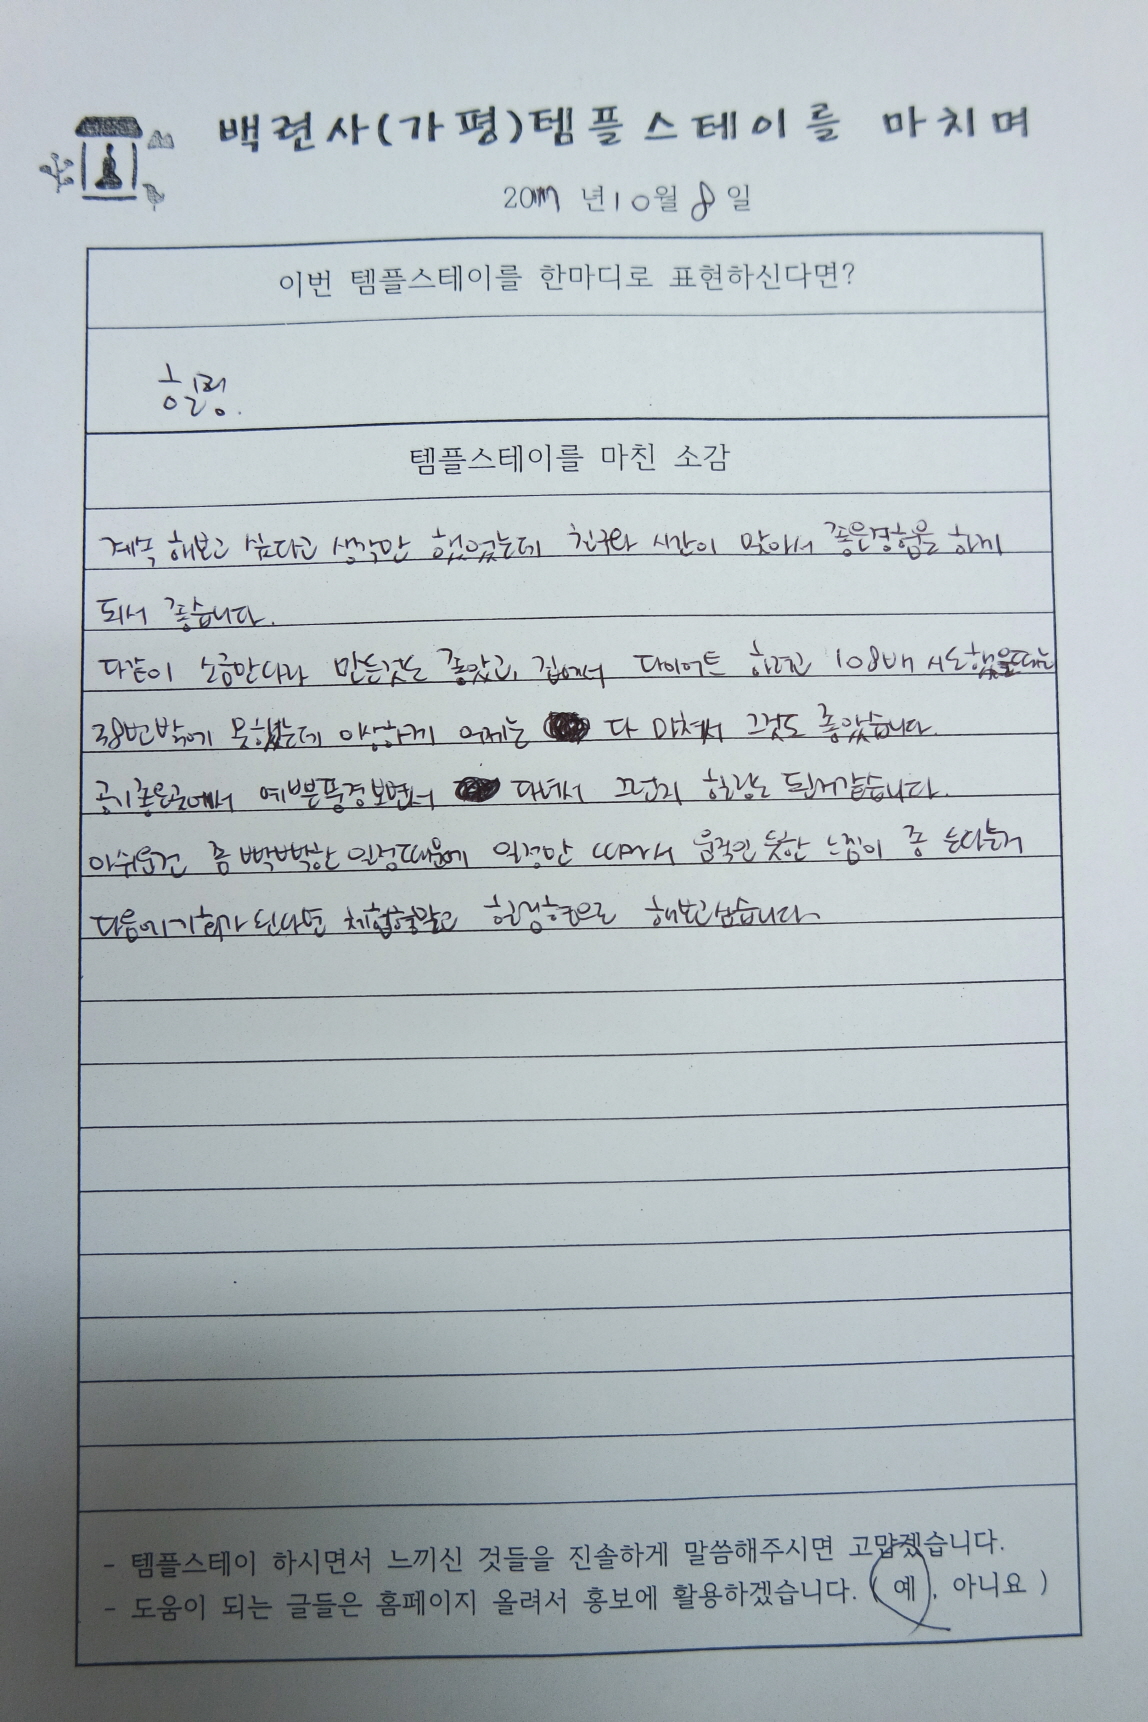 백련사(가평)템플스테이를 마치며
2017 년 10월 8일
이번 템플스테이를 한마디로 표현하신다면?
힐링.
템플스테이를 마친 소감
계속 해보고 싶다고 생각만 했었는데 친구와 시간이 맞아서 좋은경험을 하게
되서 좋습니다.
다같이 소금만다라 만든것도 좋았고, 집에서 다이어트 하려고 108배 시도했을때는
38번밖에 못했는데 이상하게 어제는 다 마쳐서 그것도 좋았습니다.
공기좋은곳에서 예쁜풍경보면서 다녀서 끄덕 힐링은 된거같습니다.
아쉬운건 좀 빡빡한 일정때문에 일정만 따라서 움직인 듯한 느낌이 좀 든다는거
다음에 기회가 된다면 체험형말고 힐링형으로 해보고싶습니다.
- 템플스테이 하시면서 느끼신 것들을 진솔하게 말씀해주시면 고맙겠습니다.
- 도움이 되는 글들은 홈페이지 올려서 홍보에 활용하겠습니다. ( 예 , 아니요 )